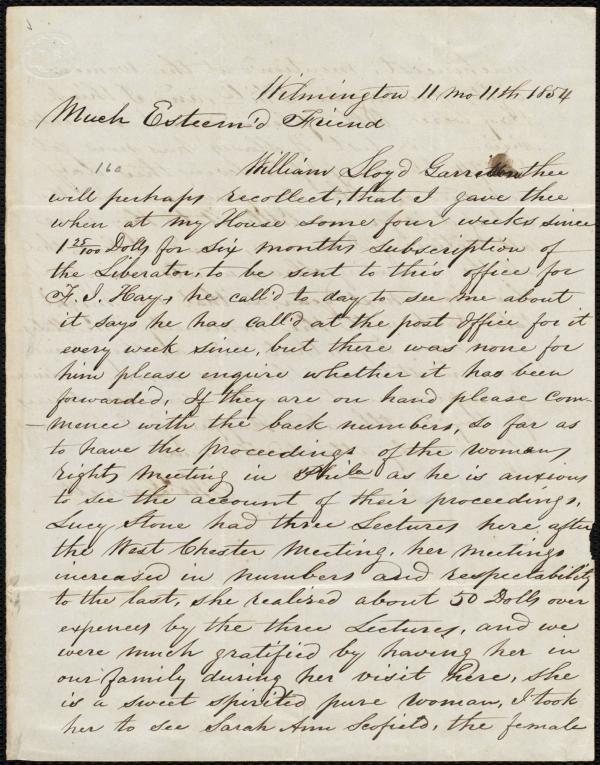 Wilmington 11 mo 11th 1854
Much Esteem'd Friend
160
William Lloyd Garrison thee
will perhaps recollect, that I gave thee
when at my House some four weeks since
1 25/100 Dolls for six months subscription of
the Liberator, to be sent to this office for
F. J. Hay, he call'd to day to see me about
it says he has call'd at the post office for it
every week since, but there was none for
him please enquire whether it has been
forwarded, If they are on hand please com-
-mence with the back numbers, so far as
to have the proceedings of the womans
rights meeting in Phila as he is anxious
to see the account of their proceedings,
Lucy Stone had three Lectures here after
the West Chester Meeting, her meetings
increased in numbers and respectability
to the last, she realized about 50 Dolls over
expences by the three Lectures, and we
were much gratified by having her in
our family during her visit here, she
is a sweet spirited pure woman, I took
her to see Sarah Ann Scofield, the female